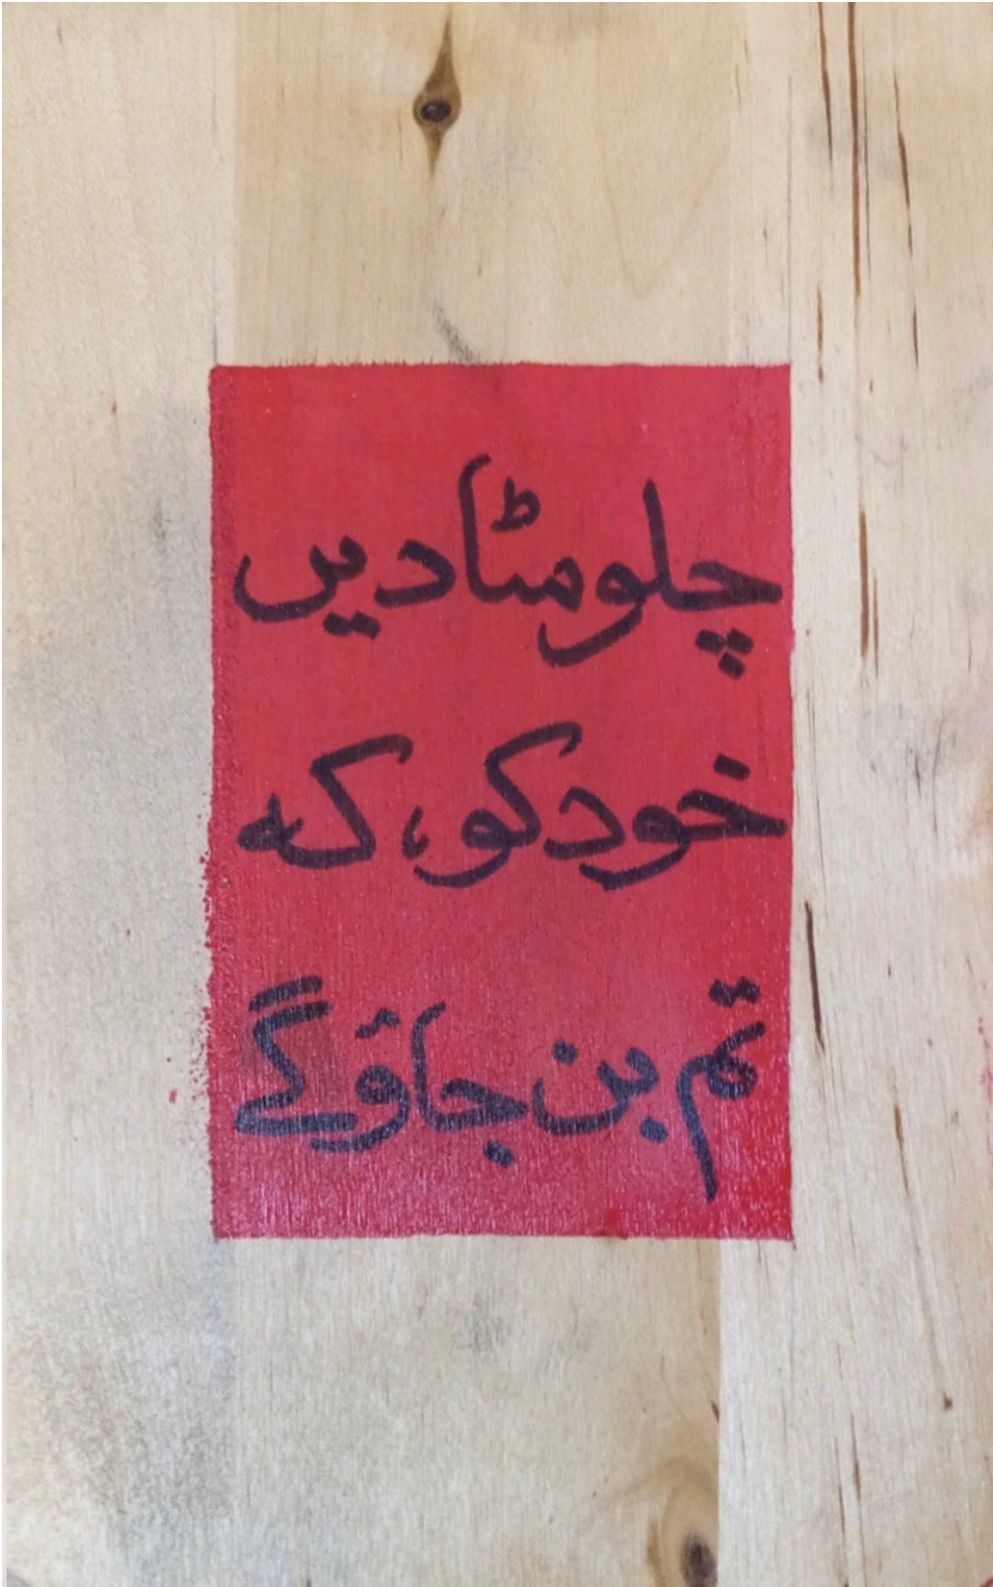 چلو مٹا دیں
خود کو، کہ
تم بن جاؤ گے